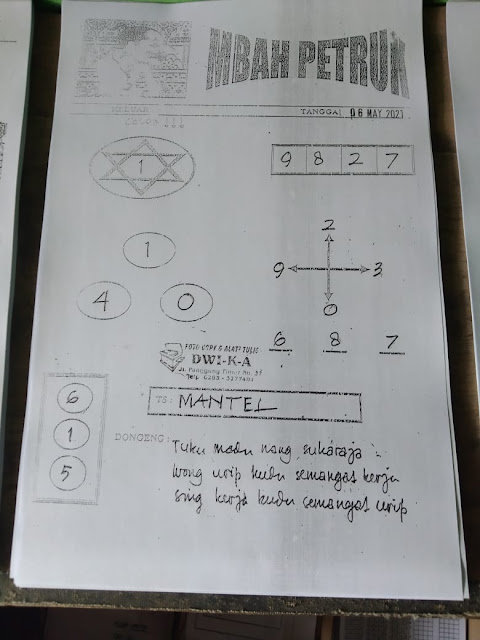 MBAH PETRUK
TANGGAL 06 MAY 2021
1
9 8 2 7
1
4 0
2
9 3
0
6 8 7
FOTO COPY & ALAT TULIS
DWI-K-A
Jl. Panggung Timur No.
Telp. 0283 -
6
1
5
TS : MANTEL
DONGENG : Tuku madu nang sukaraja
Wong urip kudu semangat kerja
Sing kerja kudu semangat urip